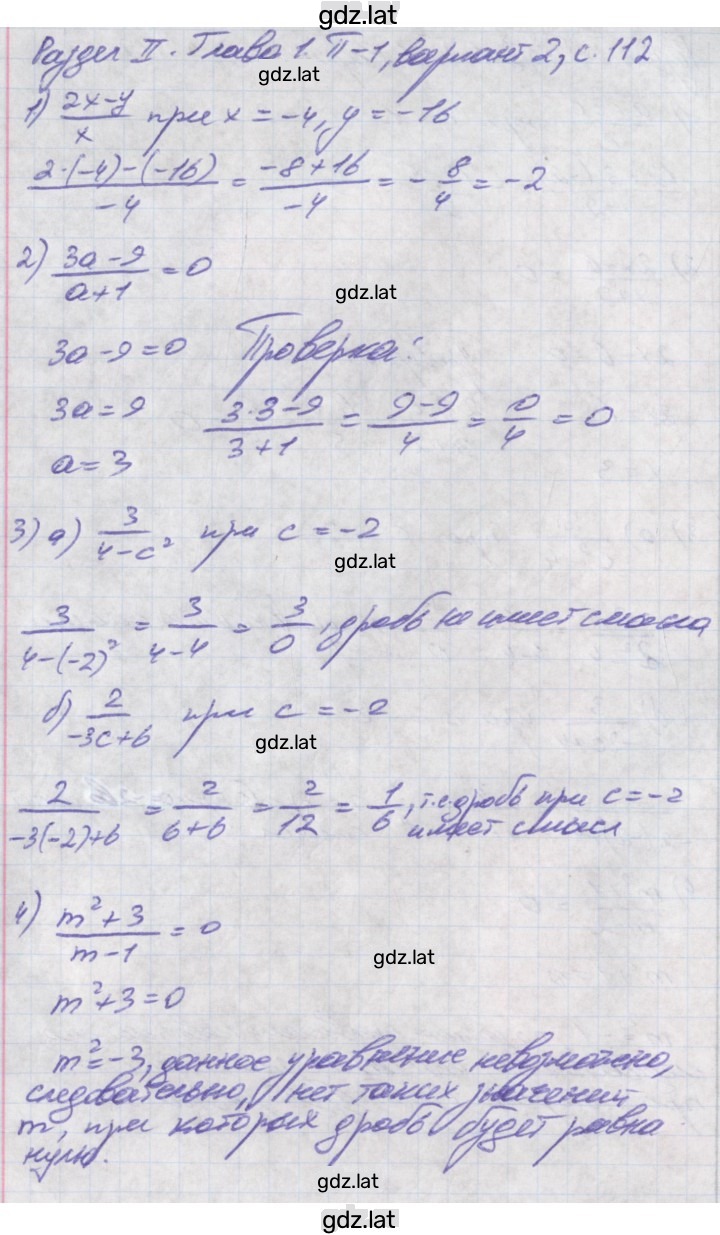 gdz.lat
Раздел II. Глава 1. П-1, вариант 2, с. 112
gdz.lat
1) (2x-y)/x при x = -4, y = -16
(2·(-4)-(-16))/(-4) = (-8+16)/(-4) = -8/4 = -2
2) (3a-9)/(a+1) = 0
gdz.lat
3a-9=0 Проверка:
3a=9 (3·3-9)/(3+1) = (9-9)/4 = 0/4 = 0
a=3
3) а) 3/(4-c²) при c = -2
gdz.lat
3/(4-(-2)²) = 3/(4-4) = 3/0, дробь не имеет смысла
б) 2/(-3c+6) при c = -2
gdz.lat
2/(-3(-2)+6) = 2/(6+6) = 2/12 = 1/6, т.е. дробь при c = -2
имеет смысл
4) (m²+3)/(m-1) = 0
gdz.lat
m²+3=0
m²=-3, данное уравнение невозможно,
следовательно, нет таких значений
m, при которых дробь будет равна
нулю.
gdz.lat
gdz.lat